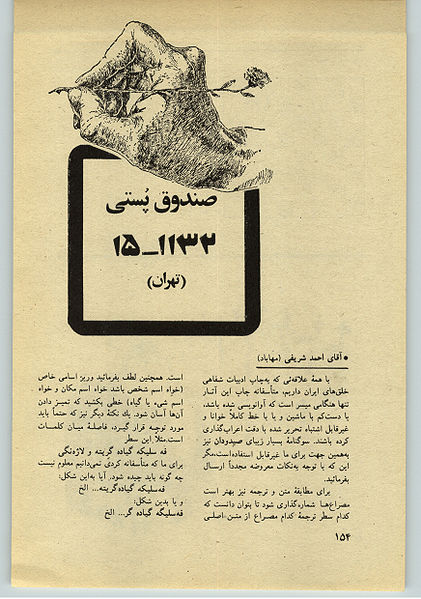 صندوق پُستی
۱۵_۱۱۳۲
(تهران)
● آقای احمد شریفی (مهاباد)
با همهٔ علاقه‌ئی که به‌چاپ ادبیات شفاهی
خلق‌های ایران داریم، متأسفانه چاپ این آثار
تنها هنگامی میسر است که آوانویسی شده باشد،
یا دست‌کم با ماشین و یا با خط کاملاً خوانا و
غیرقابل اشتباه تحریر شده با دقت اعراب‌گذاری
کرده باشند. سوگنامهٔ بسیار زیبای صیدودان نیز
به‌همین جهت برای ما غیرقابل استفاده‌است،مگر
این که با توجه به‌نکات معروضه مجدداً ارسال
بفرمائید.
برای مطابقهٔ متن و ترجمه نیز بهتر است
مصراع‌ها شماره‌گذاری شود تا بتوان دانست که
کدام سطر ترجمهٔ کدام مصراع از متن‌اصلی
است. همچنین لطف بفرمائید و‌زیر اسامی خاص
(خواه اسم شخص باشد خواه اسم مکان و خواه
اسم شیء یا گیاه) خطی بکشید که تمیز دادن
آن‌ها آسان شود. یک نکتهٔ دیگر نیز که حتماً باید
مورد توجه قرار گیرد، فاصلهٔ میان کلمات
است.مثلاً این سطر
فه سلیکه گیاده گریته و لاژه‌نگی
برای ما که متأسفانه کردی نمی‌دانیم معلوم نیست
چه گونه باید چیده شود. آیا به‌این شکل:
فه‌سلیکه گیاده‌گریته... الخ
و یا بدین شکل:
فه‌سلیگه گیاده گر... الخ
۱۵۴